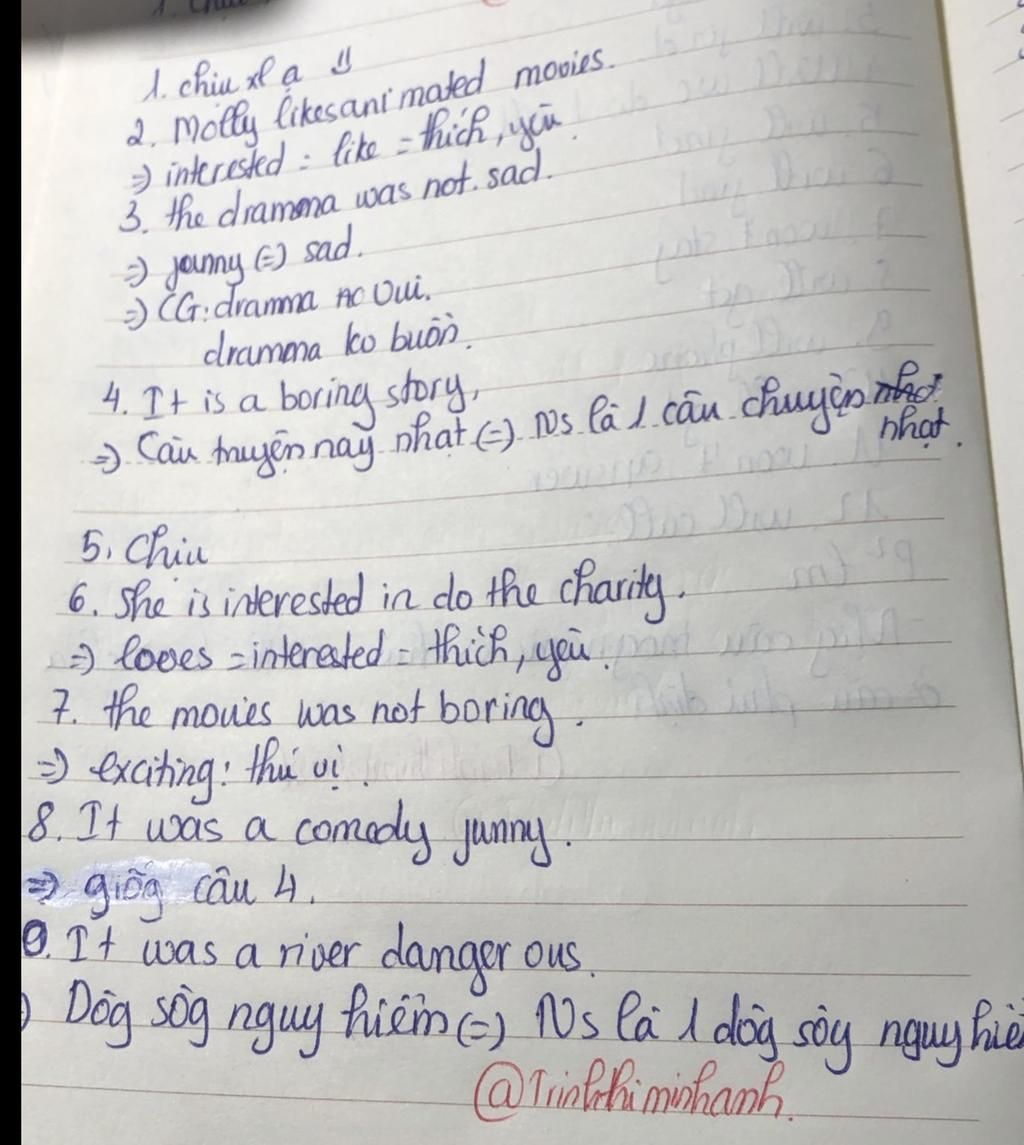 1. chiu xl ạ
2. Molly likes animated movies.
=> interested = like = thích, yêu.
3. the dramma was not sad.
=> junny (=) sad.
=> CG: dramma ko vui.
dramma ko buồn.
4. It is a boring story,
=> Câu truyện này nhạt (=) Nó là 1 câu chuyện
nhạt.
5. Chiu
6. She is interested in do the charity.
=> loves = interested = thích, yêu.
7. the movies was not boring.
=> exciting: thú vị.
8. It was a comedy junny.
=> giõg câu 4.
9. It was a river dangerous.
Dòg sôg nguy hiểm (=) Nó là 1 dòg sôg nguy hiể
@Trinhthiminhanh.